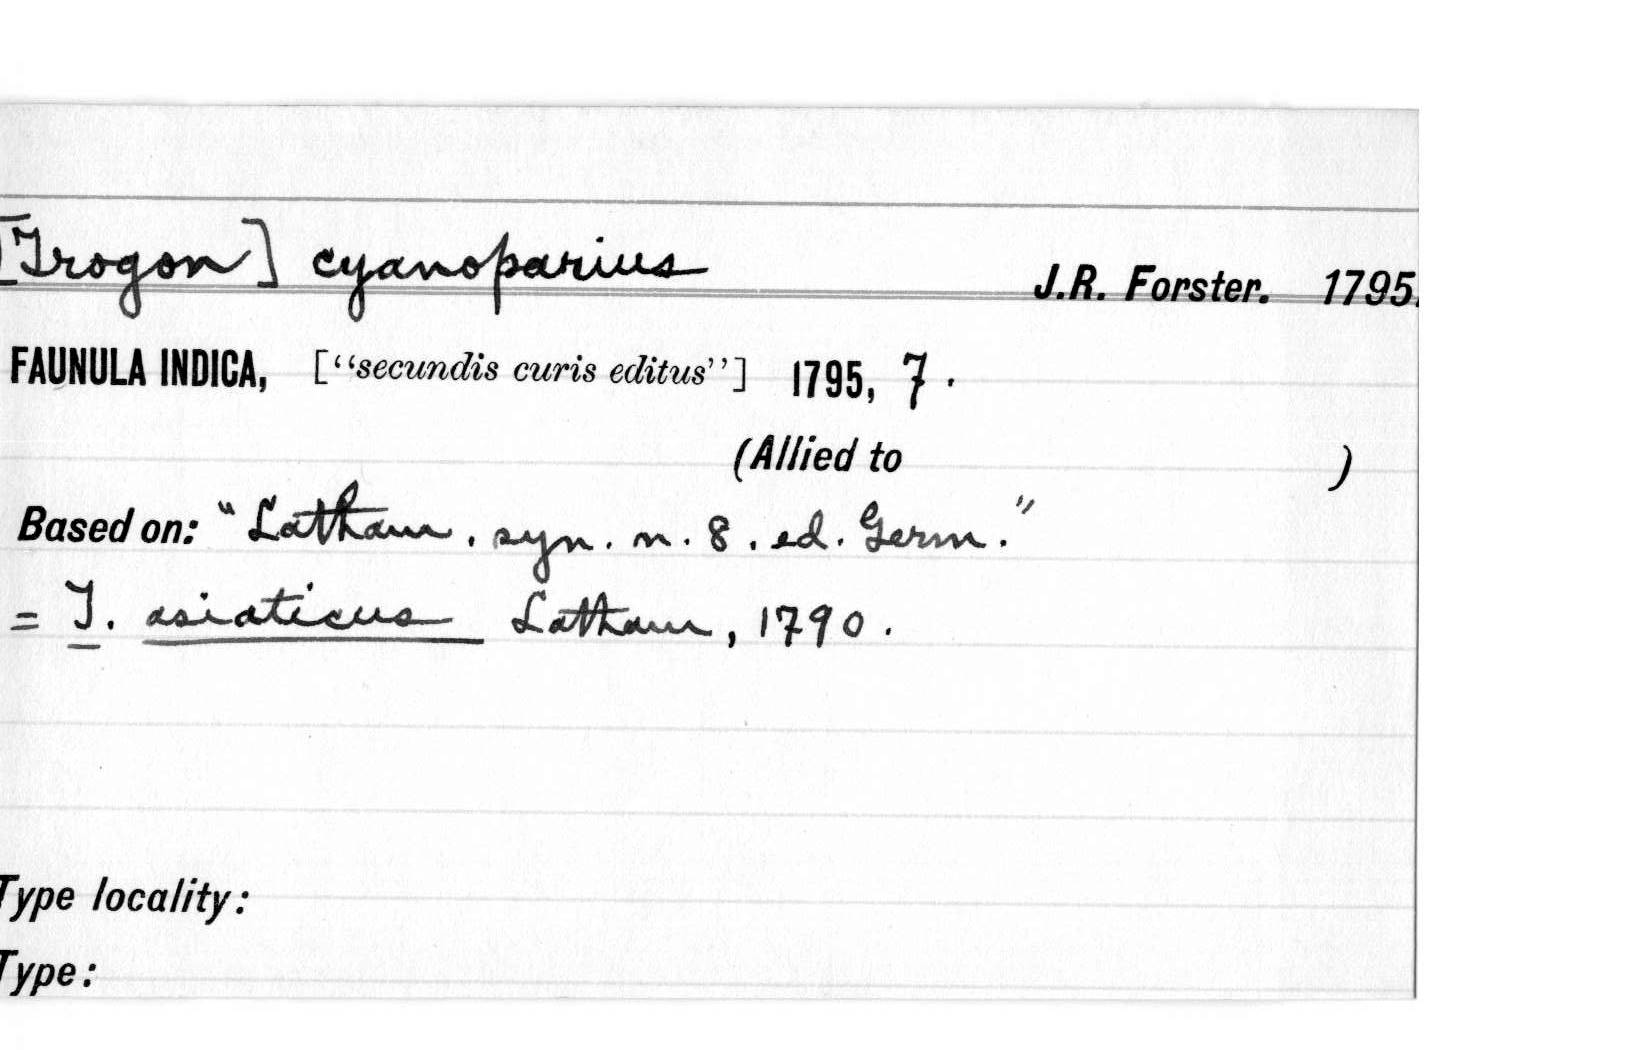 [Trogon] cyanoparius J.R. Forster. 1795.
FAUNULA INDICA, [“secundis curis editus”] 1795, 7.
(Allied to )
Based on: "Latham. syn. n. 8. ed. Germ."
= T. asiaticus Latham, 1790.
Type locality:
Type: